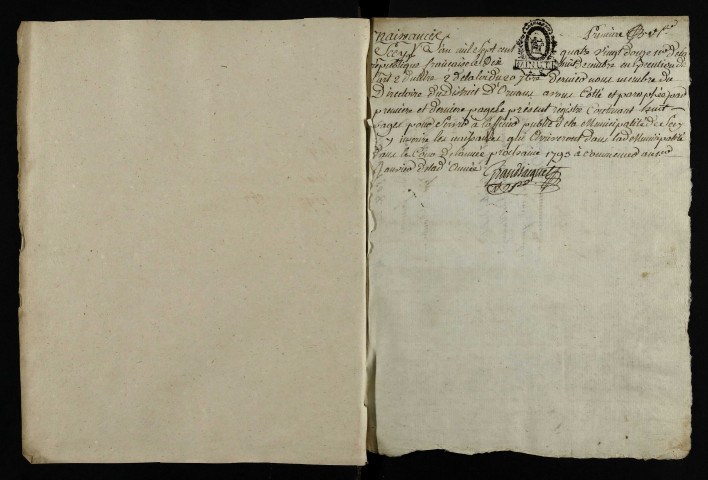 naissances Premiere
Scey L'an mil sept cent quatre vingt douze 1er de la
republique francaise le Dix huit decembre en Execution de
l'art 2 du titre 2 de la loi du 20 7bre dernier nous membre du
Directoire du district d'Ornans avons Cotté et paraphé par
premiere et derniere page le présent registre Contenant huit
pages pour servir à l'officier public de la Municipalité de Scey
a y inscrire les naissances qui arriveront dans lad Municipalité
dans le Cour De l'année prochaine 1793 à commencer au 1er
Janvier de lad Année